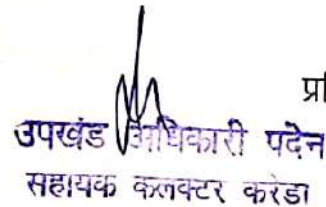 प्रति
उपखंड अधिकारी पदेन
सहायक कलक्टर करेडा